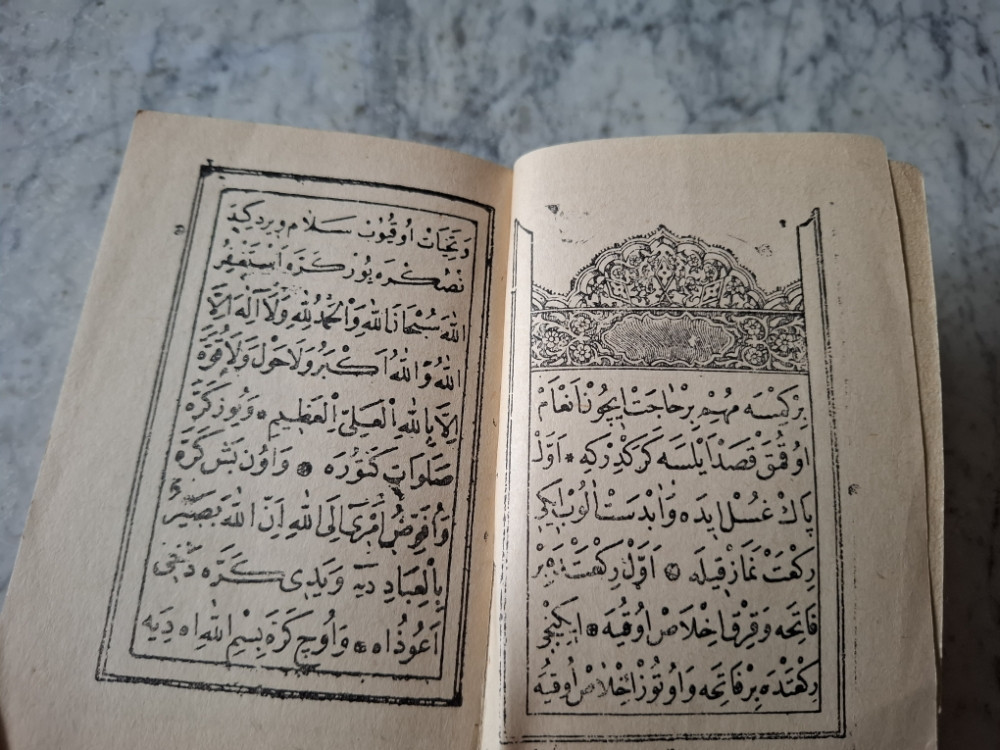 بِرْكِمْسَه مُهِمْ بِرْحَاجَتْ اِيچُونْ اَنْعَامْ
اوُقُمَقْ قَصْدْ اَيْلَسَه كَرَكْدِرْكِه * اَوَّلْ
پَاكْ غُسْلْ ايدَه وَابْدَسْتْ اٰلُوبْ اِيكِى
رِكْعَتْ نَمَازْ قِيلَه * اَوَّلْ رِكْعَتْدَه بِرْ
فَاتِحَه وَقِرْقْ اِخْلَاصْ اوُقِيَه * اِيكِنْجِى
رِكْعَتْدَه بِرْفَاتِحَه وَاوُتُوزْ اِخْلَاصْ اوُقِيَه
وَتَحِيَّاتْ اوُقُيُوبْ سَلَام وِيرِدِكْدَنْ
نْصُكْرَه يُوزْ كَرَّه اَسْتَغْفِرُ
اللهَ سُبْحَانَ اللهِ وَالْحَمْدُ لِلهِ وَلَا اِلٰهَ اِلَّا
اللهُ وَاللهُ اَكْبَرُ وَلَا حَوْلَ وَلَا قُوَّةَ
اِلَّا بِاللهِ الْعَلِىِّ الْعَظِيمِ * وَيُوزْ كَرَّه
صَلَوَاتِ كَتُورَه * وَاوُنْ بَشْ كَرَّه
وَاُفَوِّضُ اَمْرِى اِلَى اللهِ اِنَّ اللهَ بَصِيرٌ
بِالْعِبَادِ دِيَه وَيَدِى كَرَّه دَخِى
اَعُوذُ اه * وَاوُچ كَرَّه بِسْمِ اللهِ اه دِيَه